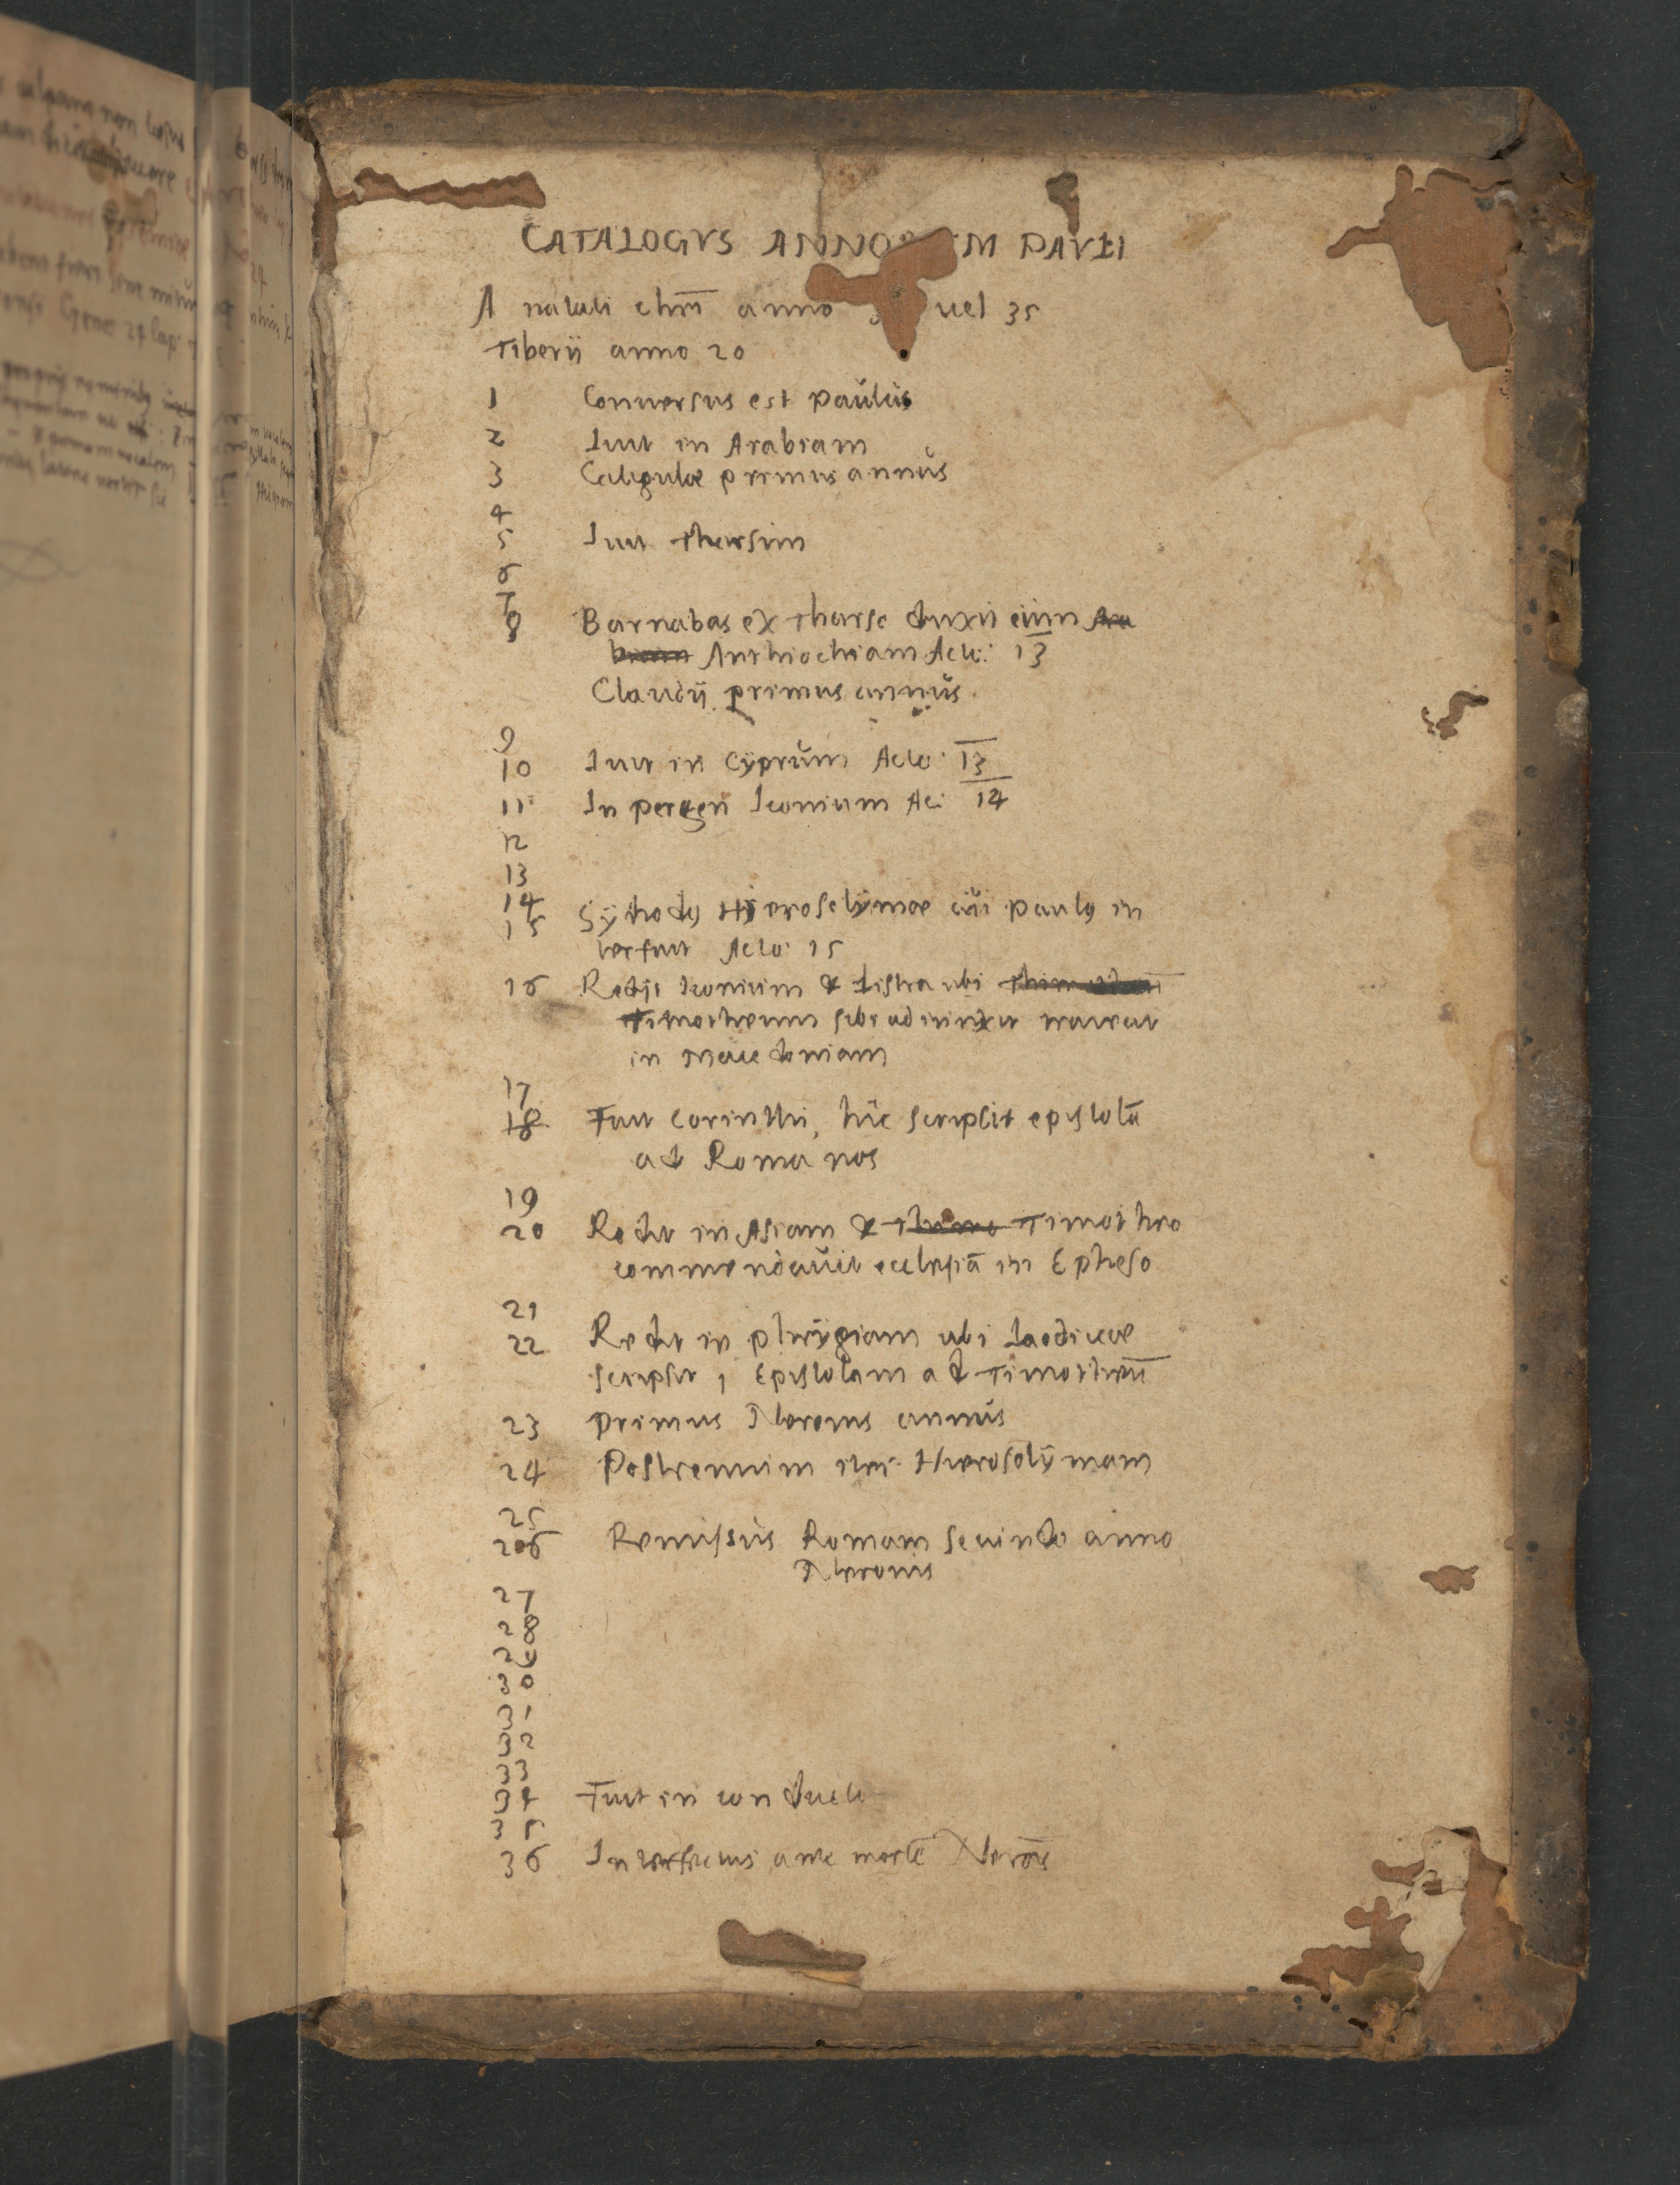 CATALOGVS ANNO M PAVLI
A natali chrī anno uel 35
Tiberij anno 20
1 Conuersus est paulus
2 Iuit in Arabiam
3 Caligulae primus annus
4
5 Iuit Tharsim
6
7
8 Barnabas ex Tharse duxit eum Ara
biam Anthiochiam Acto: 13
Claudij primus annus.
9
10 Iuit in Cyprum Acto: 13
11 In pergen Iconium Ac: 14
12
13
14 Synodus Hieroselymae cui paulus in
15 terfuit Acto: 15
16 Redijt Iconium & Listra ubi
Timotheum sibi adiunxit traiecit
in Macedoniam
17
18 Fuit Corinthi, hic scripsit epistolā
ad Romanos
19
20 Redit in Asiam & Timotheo
commendauit ecclesiā in Epheso
21
22 Redit in phrygiam ubi Laodiceae
scripsit 1 Epistolam ad Timotheū
23 primus Neronis annus
24 Postremum Hierosolymam
25
26 Remissus Romam secundo anno
Neronis
27
28
29
30
31
32
33
34 Fuit in
35
36 Interfectus ante mortē Nerōis